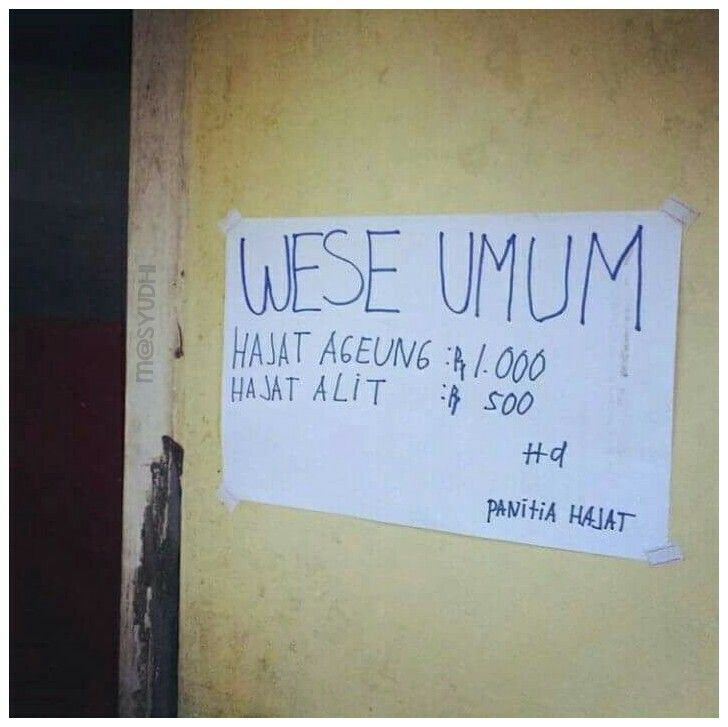 WESE UMUM
HAJAT AGEUNG : Rp 1.000
HAJAT ALIT : Rp 500
Hd
PANITIA HAJAT
M@SYUDHI